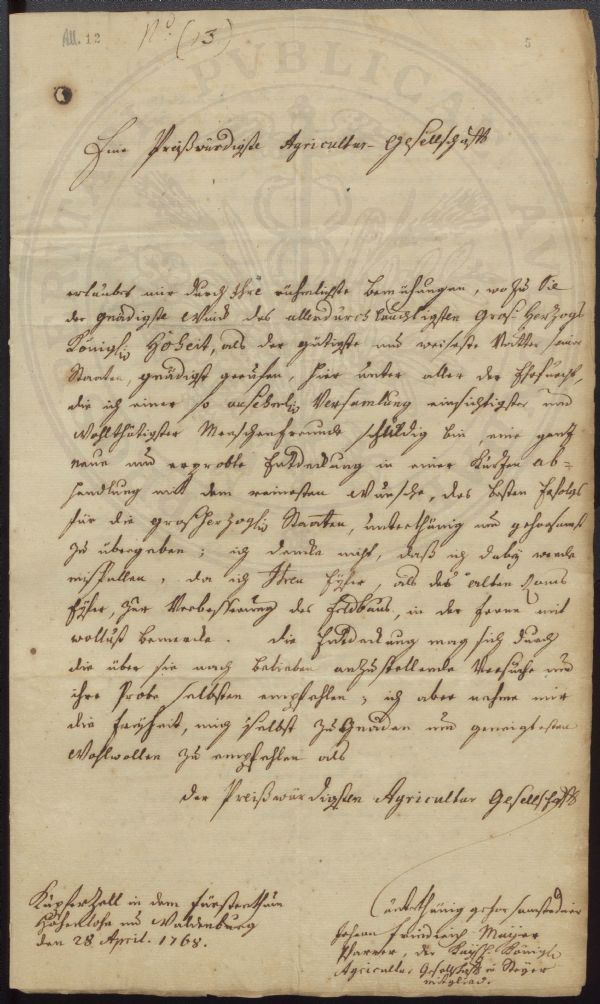 All. 12
No. (13)
5
Eine Preißwürdigste Agricultur-Gesellschafft
erlaubet mir durch Ihre rühmlichste Bemühungen, wozu Sie
der gnädigste Wink des allerdurchlauchtigsten Gros-Herzogs
Königl. Hoheit, als der gütigste und weiseste Vatter seiner
Staaten, gnädigst geruffen, hier unter aller der Ehrfurcht,
die ich einer so ansehnlich Versamlung einsichtigster und
Wohlthätigster Menschenfreunde schuldig bin, eine gantz
neue und erprobte Entdeckung in einer kurtzen ab-
handlung mit dem reinesten Wunsche, des besten Erfolgs
für die grosherzogl. Staaten, unterthänig und gehorsamst
zu übergeben; ich dencke nicht, daß ich dabey werde
misfallen, da ich Ihren Eyfer, als des alten Roms
Eyfer, zur Verbesserung des Feldbaus, in der Ferne mit
wollust bemercke. Die Entdeckung mag sich durch
die über sie nach Belieben anzustellende Versuche und
ihre Probe selbsten empfehlen; ich aber nehme mir
die Freyheit, mich selbst zu Gnaden und geneigtesten
Wohlwollen zu empfehlen als
der Preißwürdigsten Agricultur Gesellschafft
Kupferzell in dem Fürstenthum
Hohenlohe und Waldenburg
den 28 April. 1768.
unterthänig gehorsamster diener
Johann Friedrich Maÿer
Pfarrer, der Kaÿsl. Königl.
Agricultur Gesellschafft in Steyer
mitglied.